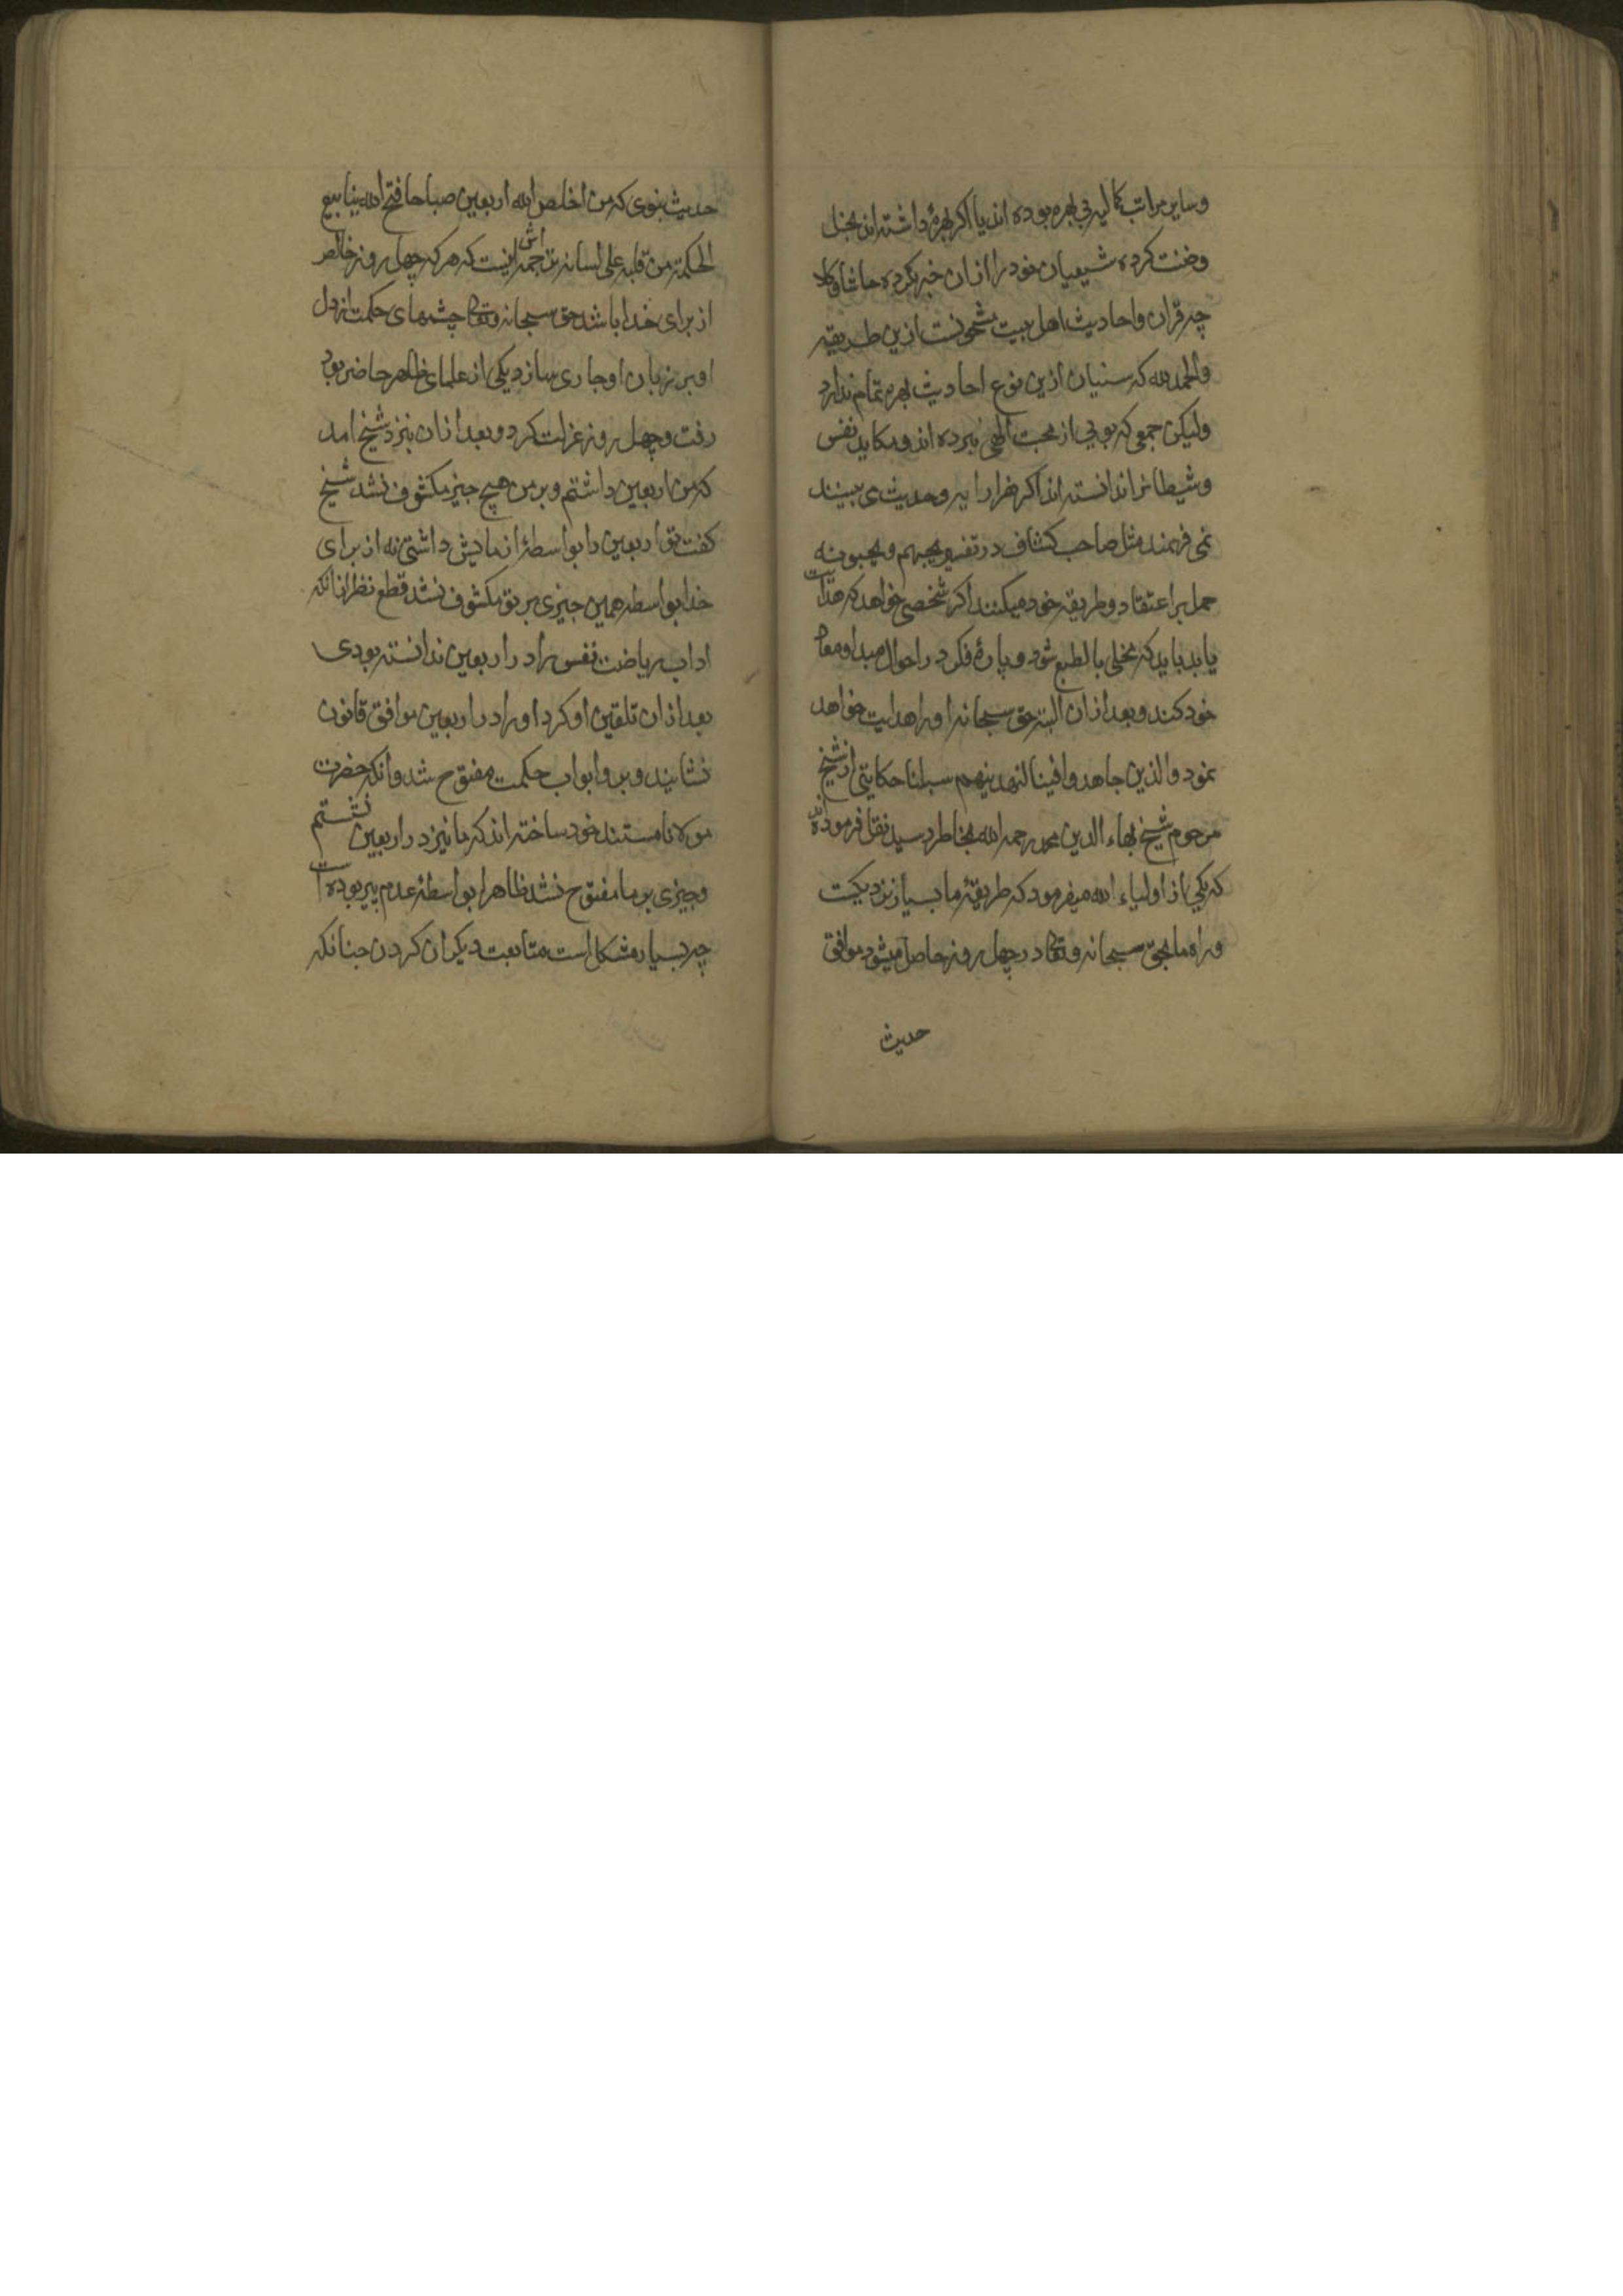 وسایر مراتب کمالیه بی بهره بوده اند یا اکر بهرهٔ داشته اند بخل
وضنت کرده شیعیان خود را ازان خبر نکرده حاشا وکلا
چه قران واحادیث اهل بیت مشحونست ازین طریقه
والحمد لله که سنیان ازین نوع احادیث بهره تمام ندارد
ولیکن جمعی که بویی از محبت الهی نبرده اند ومکاید نفس
وشیطان را ندانسته اند اکر هزار ایه وحدیث می بینند
نمی فهمند مثل صاحب کشاف در تفسیر یحبهم ویحبونه
حمل بر اعتقاد وطریقه خود میکنند اکر شخصی خواهد که هدایت
یابد باید که مخلی بالطبع شود و پارهٔ فکر در احوال مبدا ومعاد
خود کند و بعد ازان البته حق سبحانه او را هدایت خواهد
نمود والذین جاهدوا فینا لنهدینهم سبلنا حکایتی از شیخ
مرحوم شیخ بهاء الدین محمد رحمه الله بخاطر رسید نقل فرموده اند
که یکی از اولیاء الله میفرمود که طریقهٔ ما بسیار نزدیکست
وراه ما بحق سبحانه وتعالی در چهل روز حاصل میشود موافق
حدیث
حدیث نبوی که من اخلص لله اربعین صباحا فتح الله ینابیع
الحکمة من قلبه علی لسانه ترجمه اش اینست که هر که چهل روز خالص
از برای خدا باشد حق سبحانه وتعالی چشمهای حکمت از دل
او بر زبان او جاری سازد یکی از علمای ظاهر حاضر بود
رفت و چهل روز عزلت کرد و بعد ازان بنزد شیخ امد
که من اربعین داشتم و بر من هیچ چیز مکشوف نشد شیخ
کفت تو اربعین را بواسطهٔ ازمایش داشتی نه از برای
خدا بواسطه همین چیزی بر تو مکشوف نشد قطع نظر ازانکه
اداب ریاضت نفس را در اربعین ندانسته بودی
بعد ازان تلقین او کرد او را در اربعین موافق قانون
نشانیند و برو ابواب حکمت مفتوح شد وانکه حضرت
مولانا مستند خود ساخته اند که ما نیز در اربعین نشستم
وچیزی بر ما مفتوح نشد ظاهرا بواسطهٔ عدم پیر بوده است
چه بسیار مشکل است متابعت دیکران کردن چنانکه